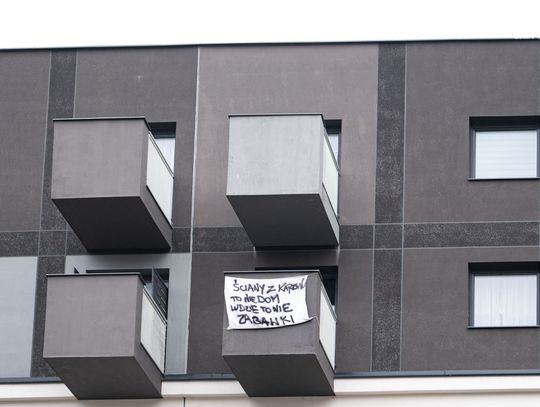 ŚCIANY Z KARTONU
TO NIE DOM
WDZE TO NIE
ZABAWKI